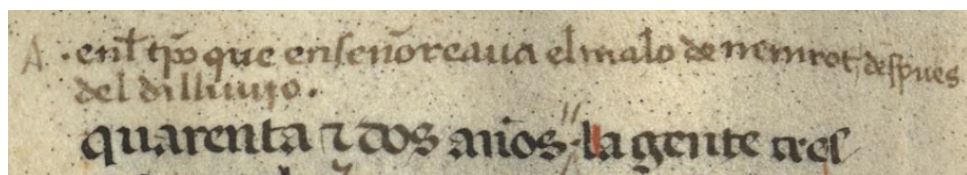 A · enl̃ tp̃o que enseñoreaua el malo de nemrot, despues
del dilluuio.
quarenta ⁊ dos años · la gente cres